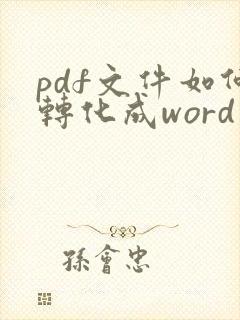 pdf文件如何
轉化成word
孫會忠